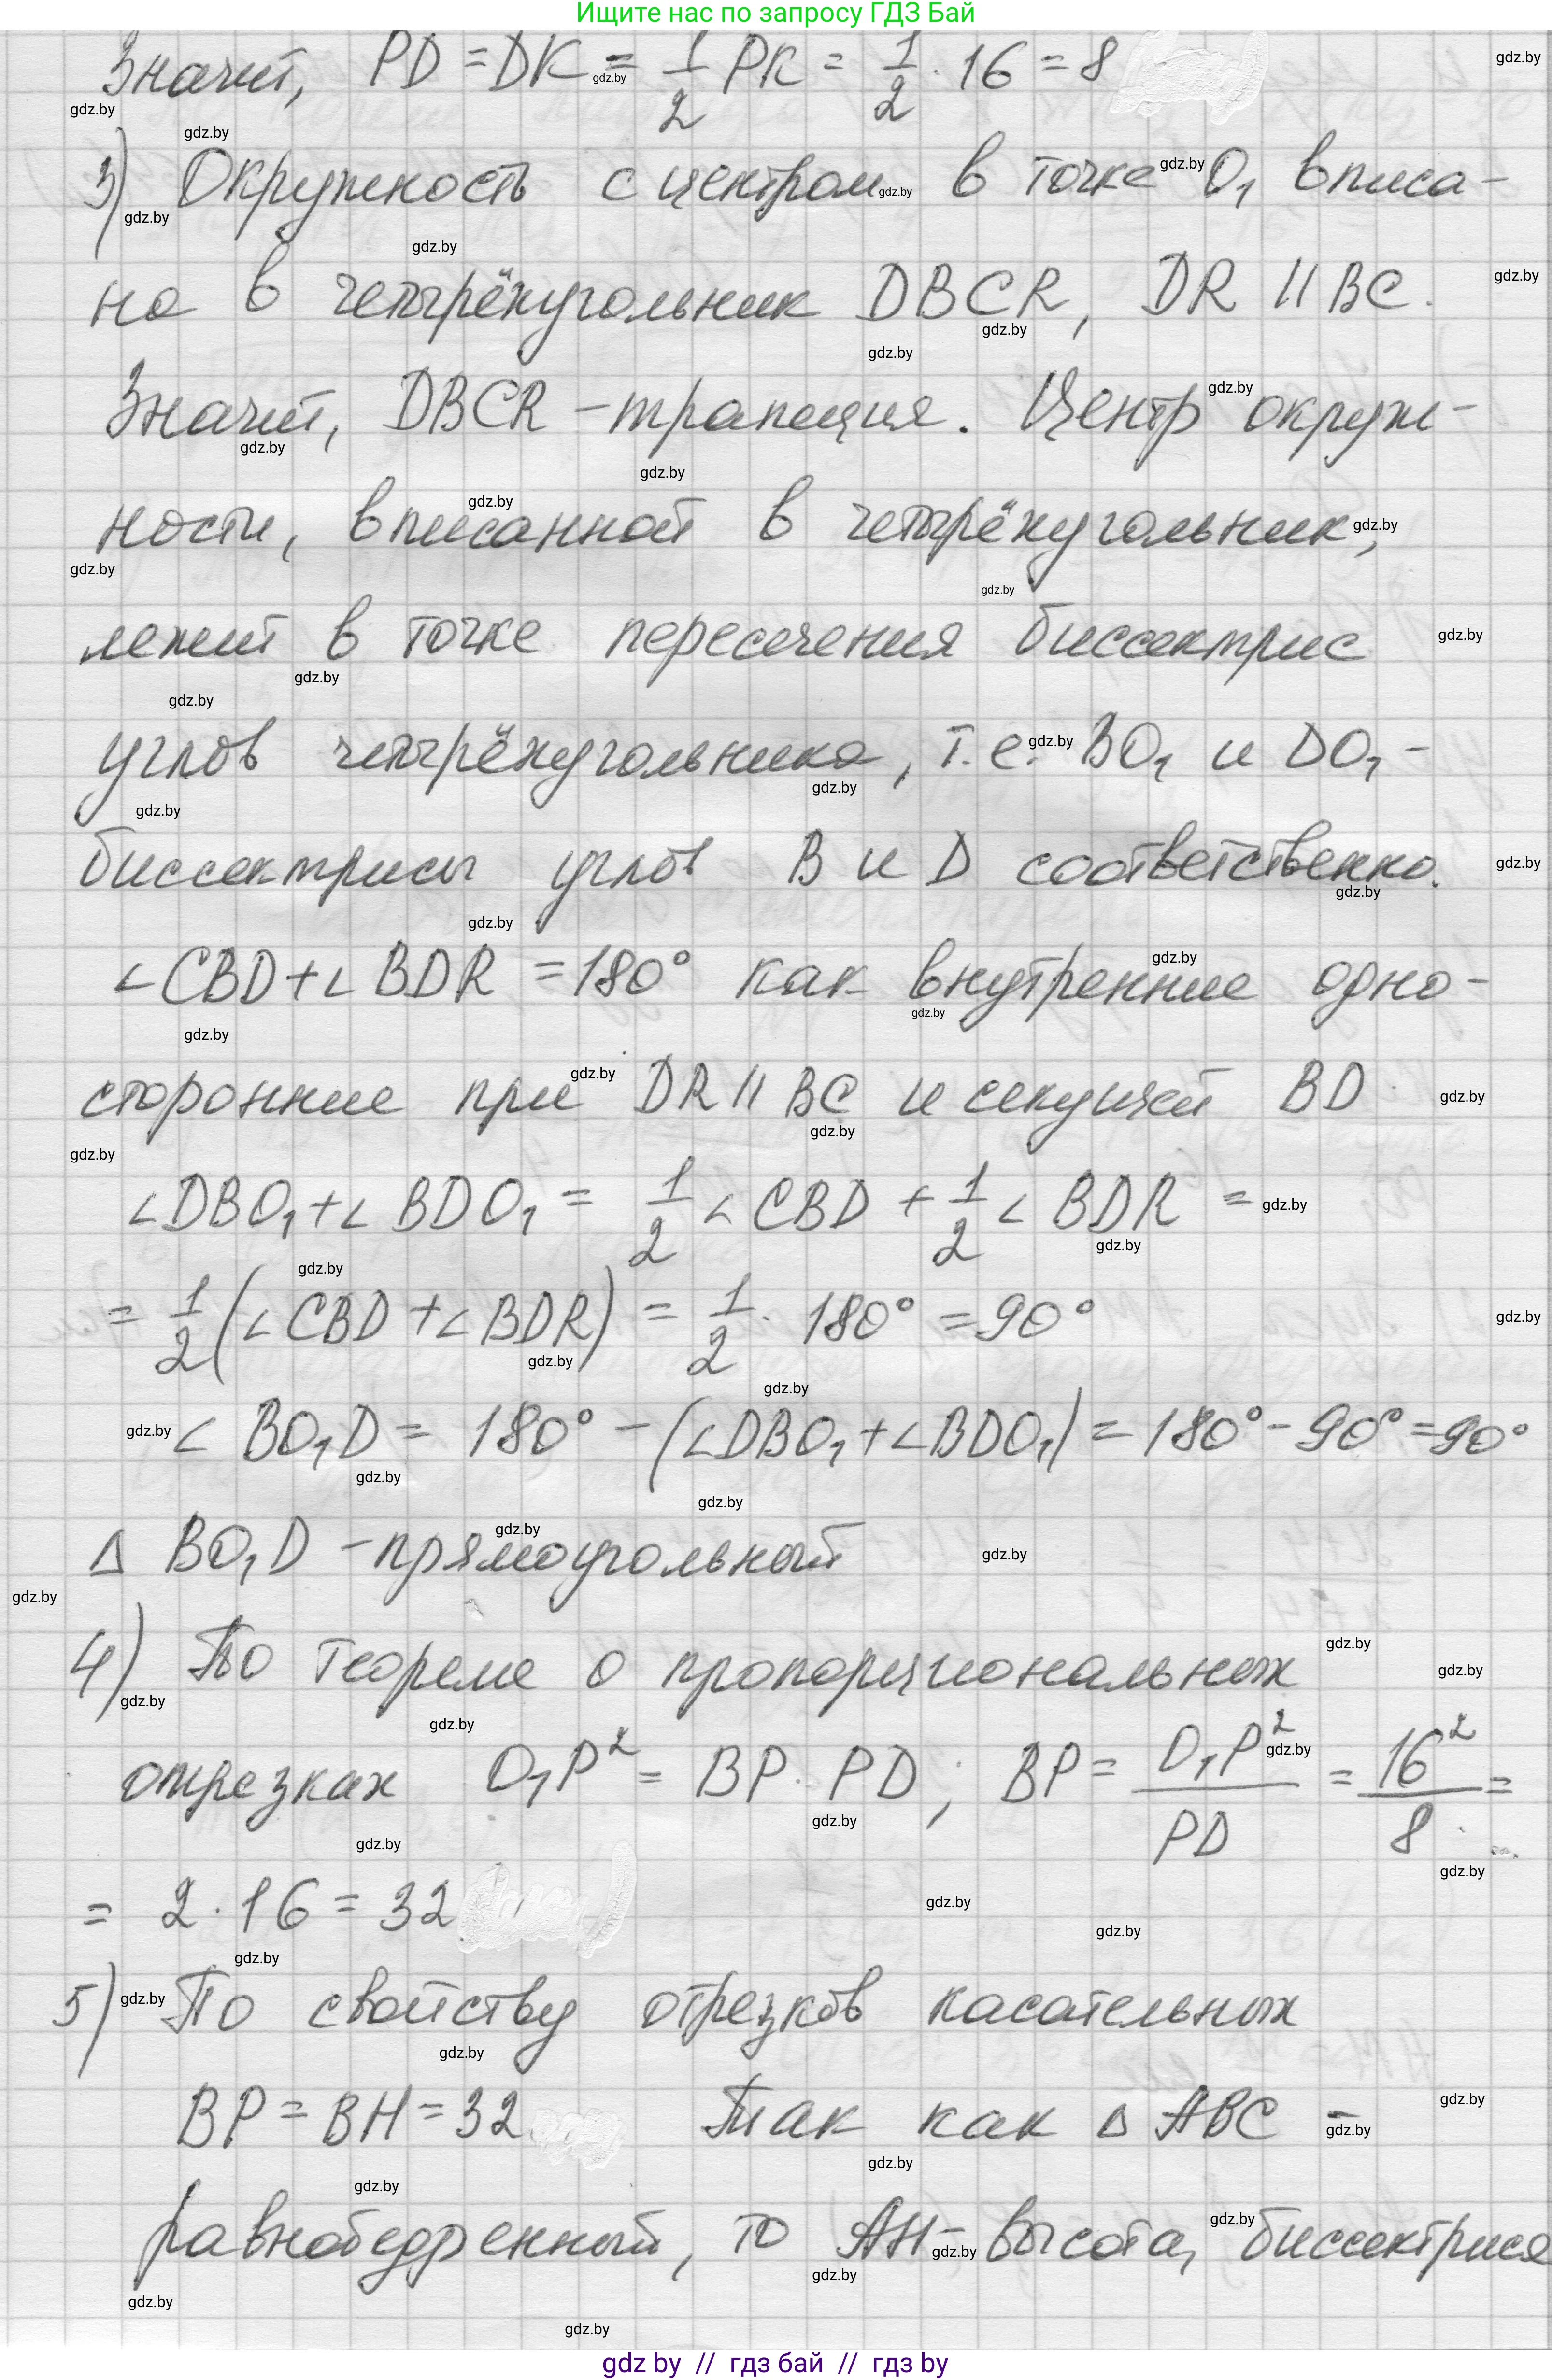 Ищите нас по запросу ГДЗ Бай
Значит, PD = DK = 1/2 PK = 1/2 · 16 = 8
3) Окружность с центром в точке O₁ вписа-
на в четырёхугольник DBCR, DR || BC.
Значит, DBCR – трапеция. Центр окруж-
ности, вписанной в четырёхугольник,
лежит в точке пересечения биссектрис
углов четырёхугольника, т.е. BO₁ и DO₁ –
биссектрисы углов B и D соответственно.
∠CBD + ∠BDR = 180° как внутренние одно-
сторонние при DR || BC и секущей BD
∠DBO₁ + ∠BDO₁ = 1/2 ∠CBD + 1/2 ∠BDR =
= 1/2 (∠CBD + ∠BDR) = 1/2 · 180° = 90°
∠BO₁D = 180° – (∠DBO₁ + ∠BDO₁) = 180° – 90° = 90°
Δ BO₁D – прямоугольный
4) По теореме о пропорциональных
отрезках O₁P² = BP · PD; BP = O₁P²/PD = 16²/8 =
= 2 · 16 = 32
5) По свойству отрезков касательных
BP = BH = 32 Так как Δ ABC –
равнобедренный, то AH – высота, биссектриса
gdz by // гдз бай // гдз by